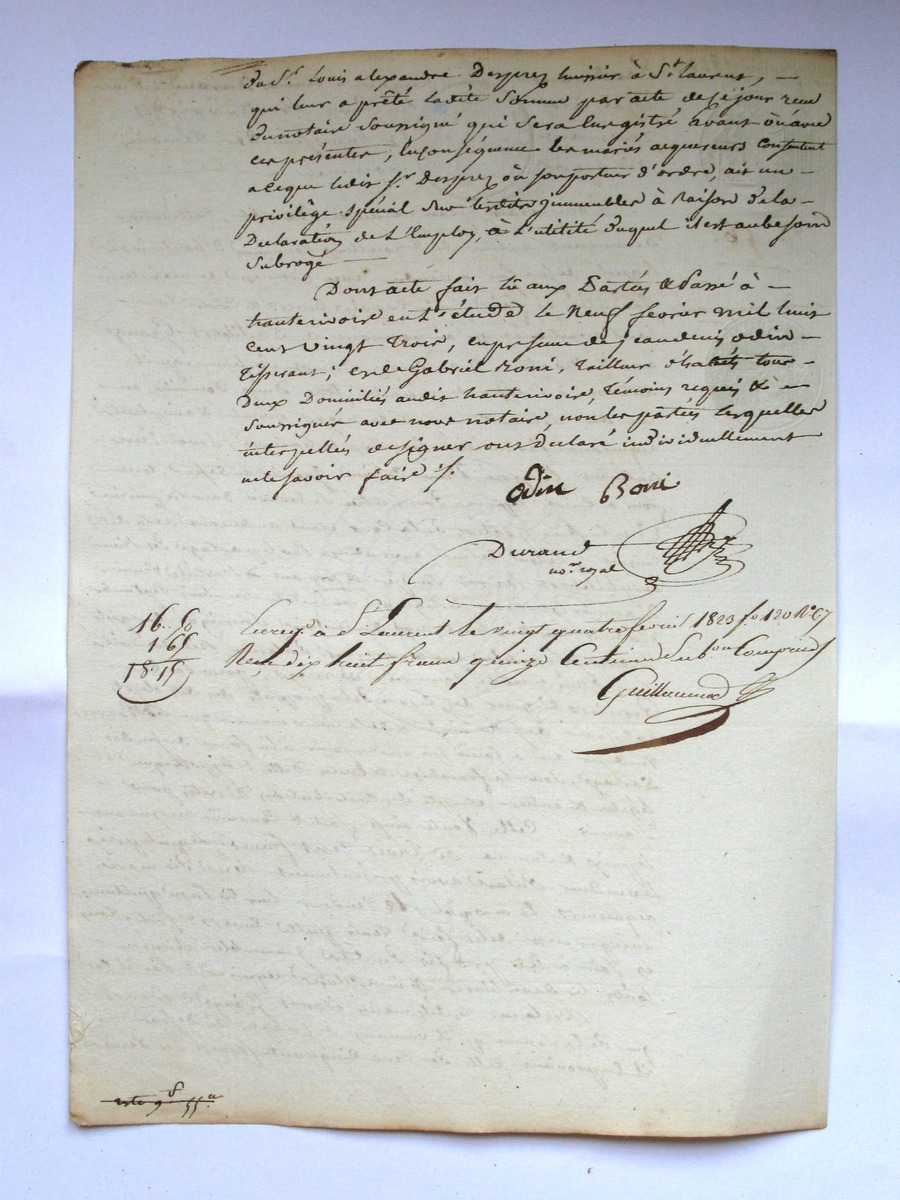 du Sr. Louis alexandre Desprez huissier à St. Laurent, —
qui leur a prêté ladite Somme par acte de ce jour recu
du notaire Soussigné qui Sera Enregistré avant ou avec
ces présentes, En conséquence les mariés acquereurs Consentent
a ce que ledit Sr. Desprez ou son porteur d'ordre, ait un —
privilège spécial sur lesdits jmmeubles à Raison de la —
Declaration de L'Employ, à L'utilité duquel il est au besoin
Subrogé —
Dont acte fait lu aux Parties & Passé à —
hauterivoire en L'étude le Neuf fevrier mil huit
cent Vingt Trois, en presence de jean denis odin
Tisserant, et de Gabriel Boni, Tailleur d'habits tous
Deux Domiciliés audit hauterivoire, Témoins requis & —
Soussignés avec nous notaire, non les parties lesquelles
interpellés de signer ont déclaré individuellement
ne le savoir faire ./.
Odin Boni
Durand
no.re royal
16.. 50
1 65
18.. 15
Enregé. à St. Laurent le vingt quatre fevrier 1823 fo. 120 Ro. C 7
Reçu dix huit francs quinze Centimes Sub.on Compris
Guillermard